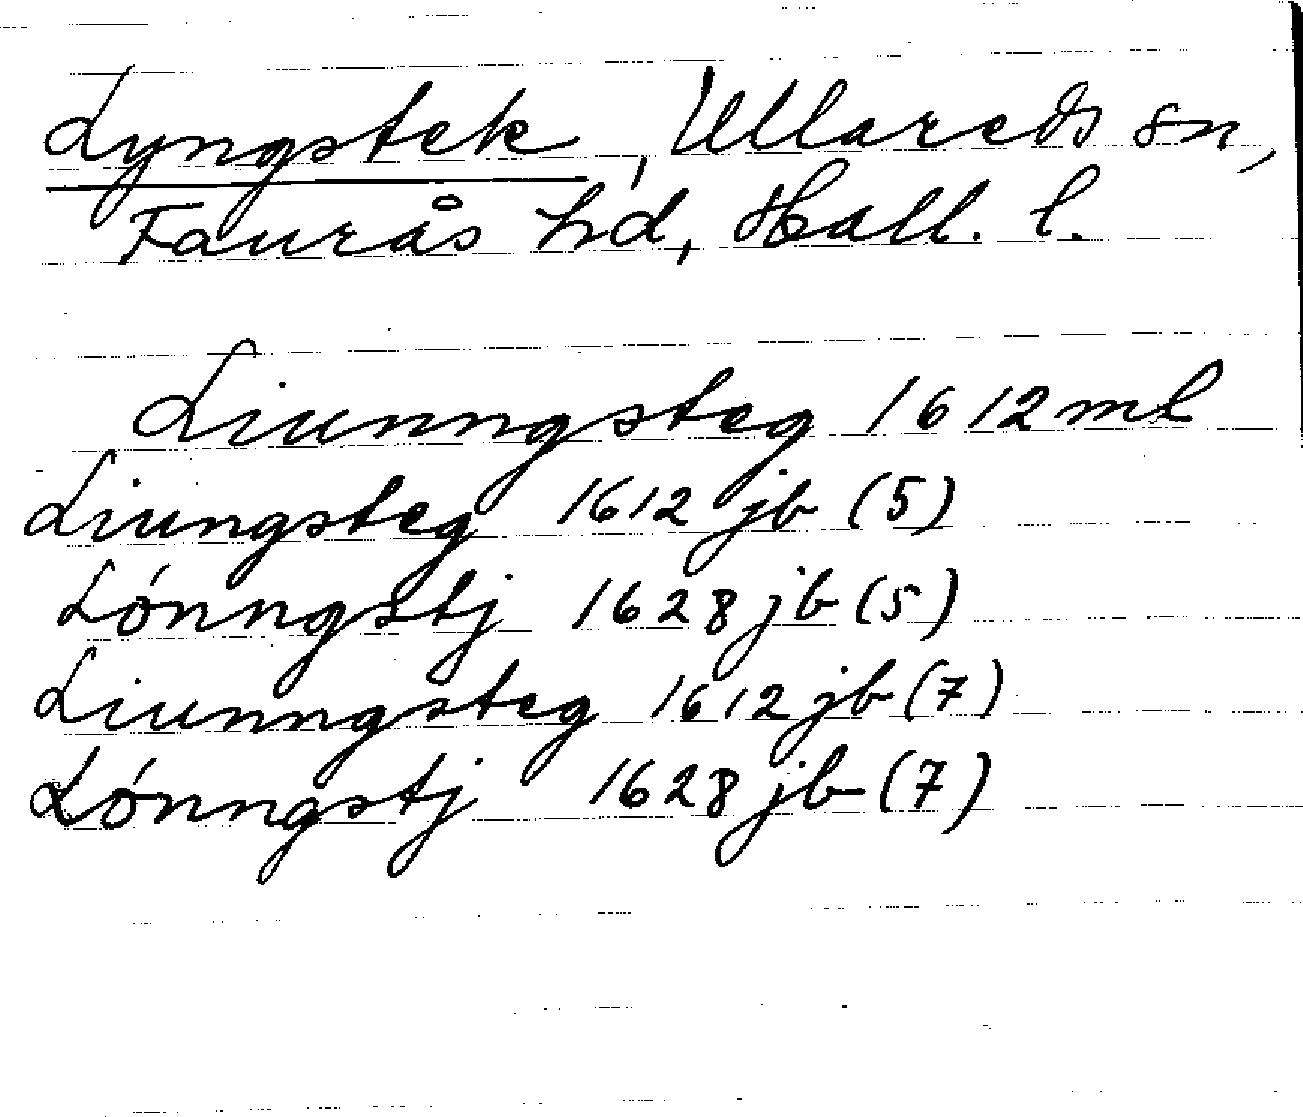 Lyngstek, Ullareds sn,
Faurås hd, Hall. l.
Liunngsteg 1612 ml
Liungsteg 1612 jb (5)
Lónngstj 1628 jb (5)
Liunngsteg 1612 jb (7)
Lónngstj 1628 jb (7)